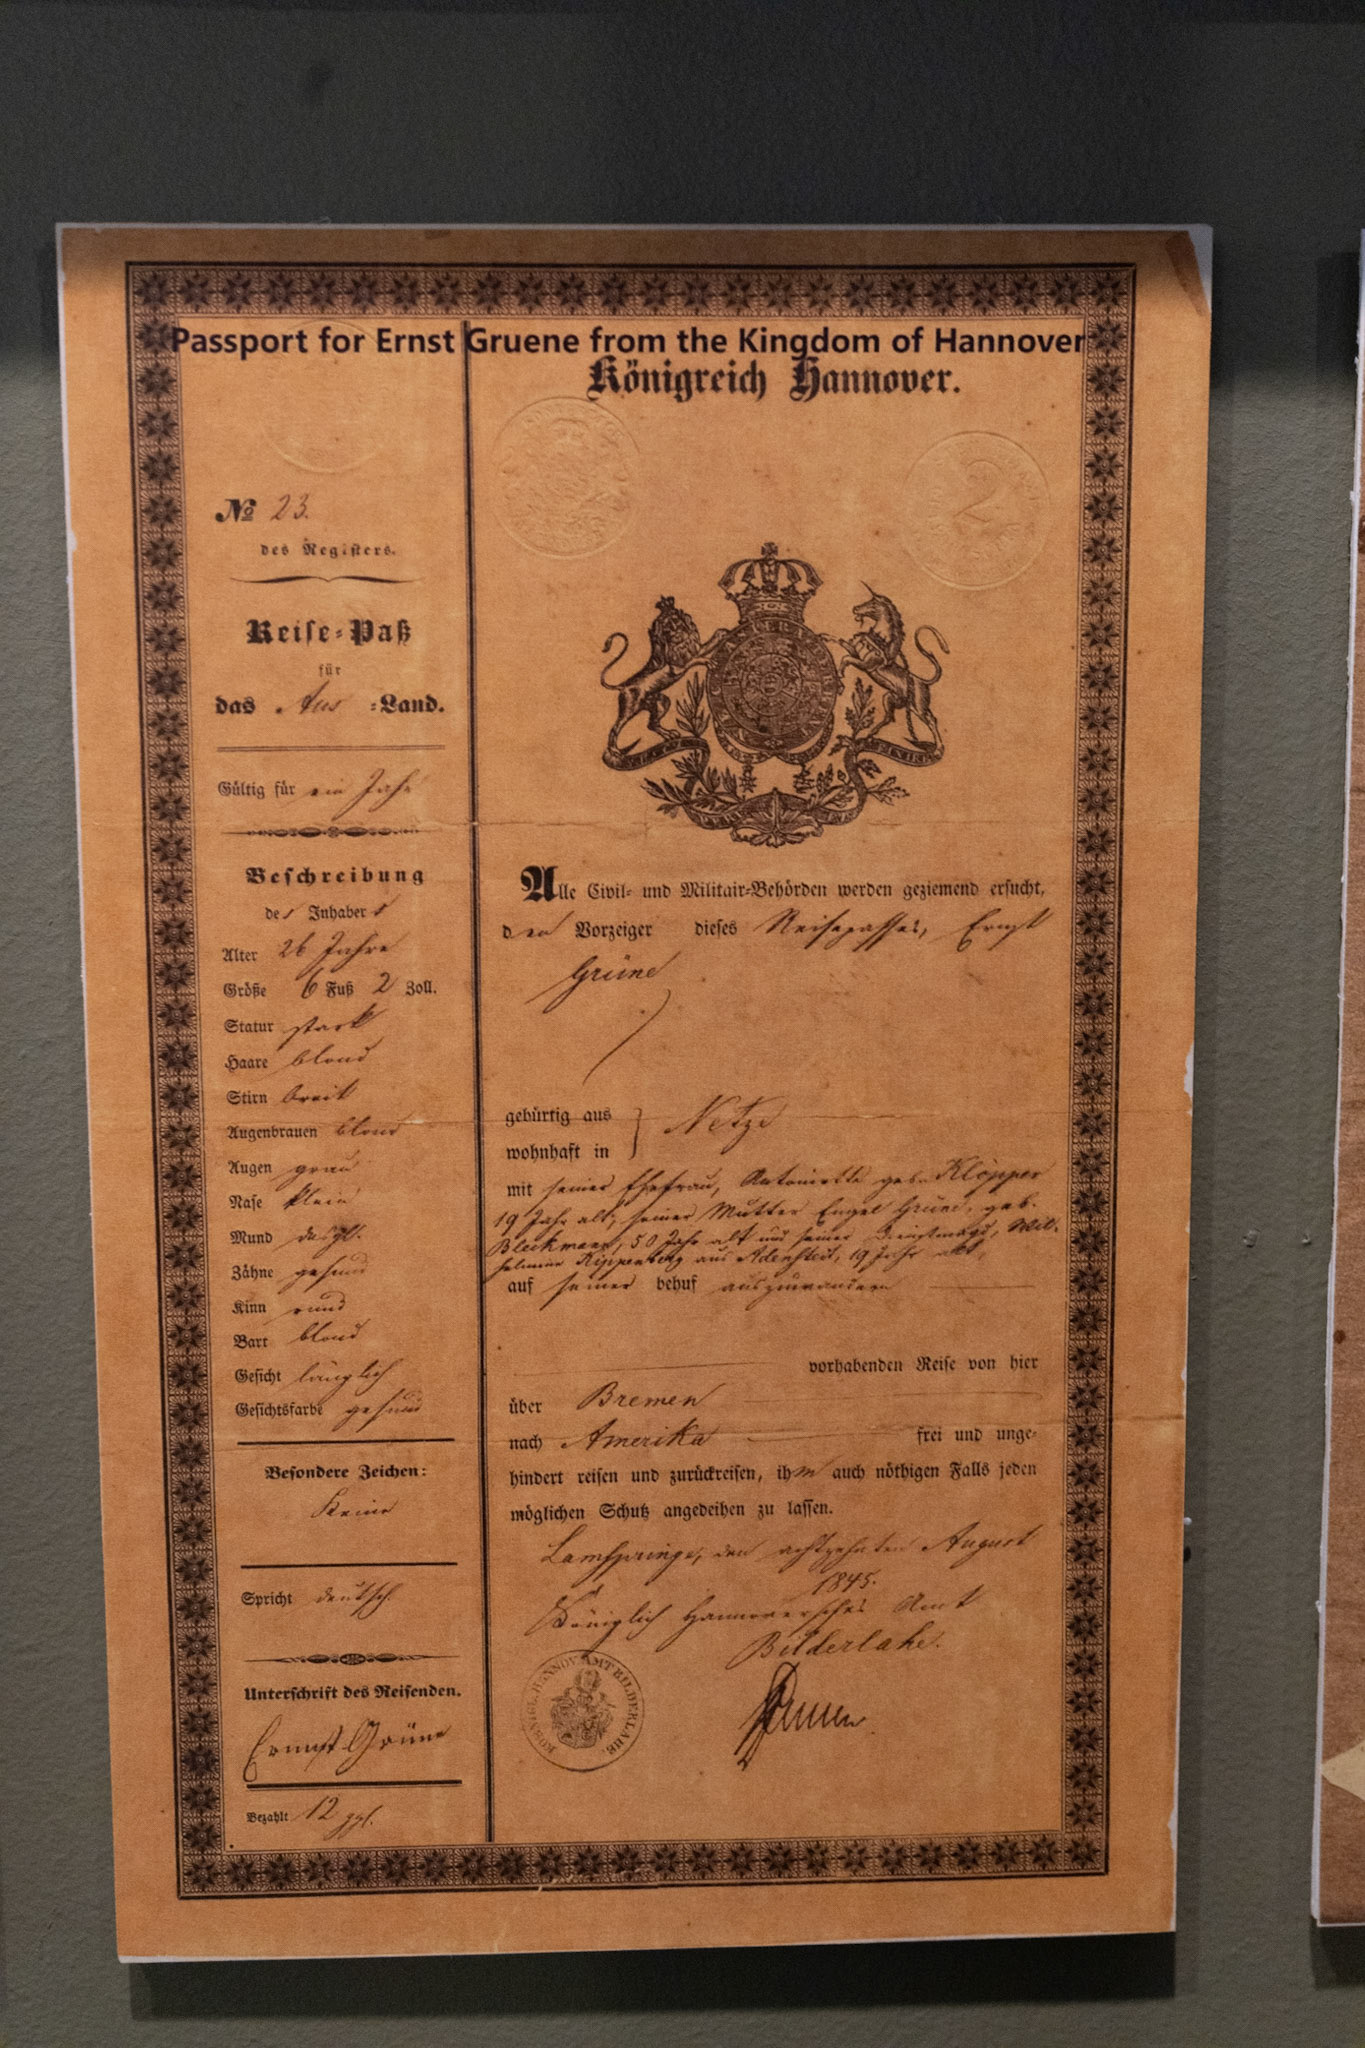 Passport for Ernst Gruene from the Kingdom of Hannover
Königreich Hannover.
№ 23.
des Registers.
Reise-Paß
für
das Aus-Land.
Gültig für ein Jahr
Beschreibung
des Inhabers
Alter 26 Jahre
Größe 6 Fuß 2 Zoll.
Statur stark
Haare blond
Stirn breit
Augenbrauen blond
Augen grau
Nase klein
Mund dasgl.
Zähne gesund
Kinn rund
Bart blond
Gesicht länglich
Gesichtsfarbe gesund
Besondere Zeichen:
Keine
Spricht deutsch.
Unterschrift des Reisenden.
Ernst Grüne
Bezahlt 12 ggl.
2
Alle Civil- und Militair-Behörden werden geziemend ersucht,
den Vorzeiger dieses Reisepasses, Ernst
Grüne
gebürtig aus
wohnhaft in } Netze
mit seiner Ehefrau, Antoinette geb. Klöpper
19 Jahr alt, seiner Mutter Engel Grüne, geb.
Bleckmann, 50 Jahr alt und seiner Dienstmagd, Wil-
helmine Rippenberg aus Adenstedt, 19 Jahr alt,
auf seiner behuf auszuwandern
vorhabenden Reise von hier
über Bremen
nach Amerika frei und unge-
hindert reisen und zurückreisen, ihm auch nöthigen Falls jeden
möglichen Schutz angedeihen zu lassen.
Lamspringe, den achtzehnten August
1845.
Königlich Hannoversches Amt
Bilderlahe.
KOENIGL. HANNOV. AMT BILDERLAHE.